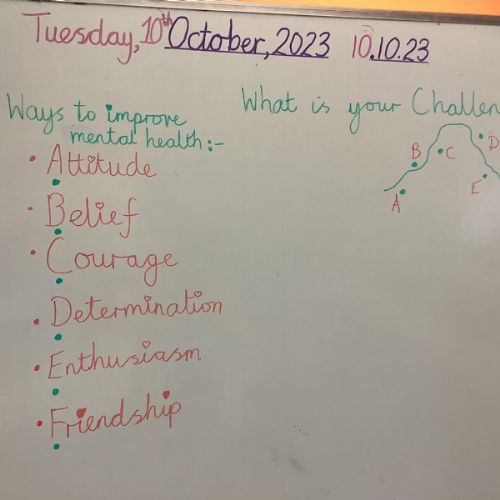 Tuesday, 10th October, 2023 10.10.23
Ways to improve
mental health:-
• Attitude
• Belief
• Courage
• Determination
• Enthusiasm
• Friendship
What is your Challen
A
B
C
D
E